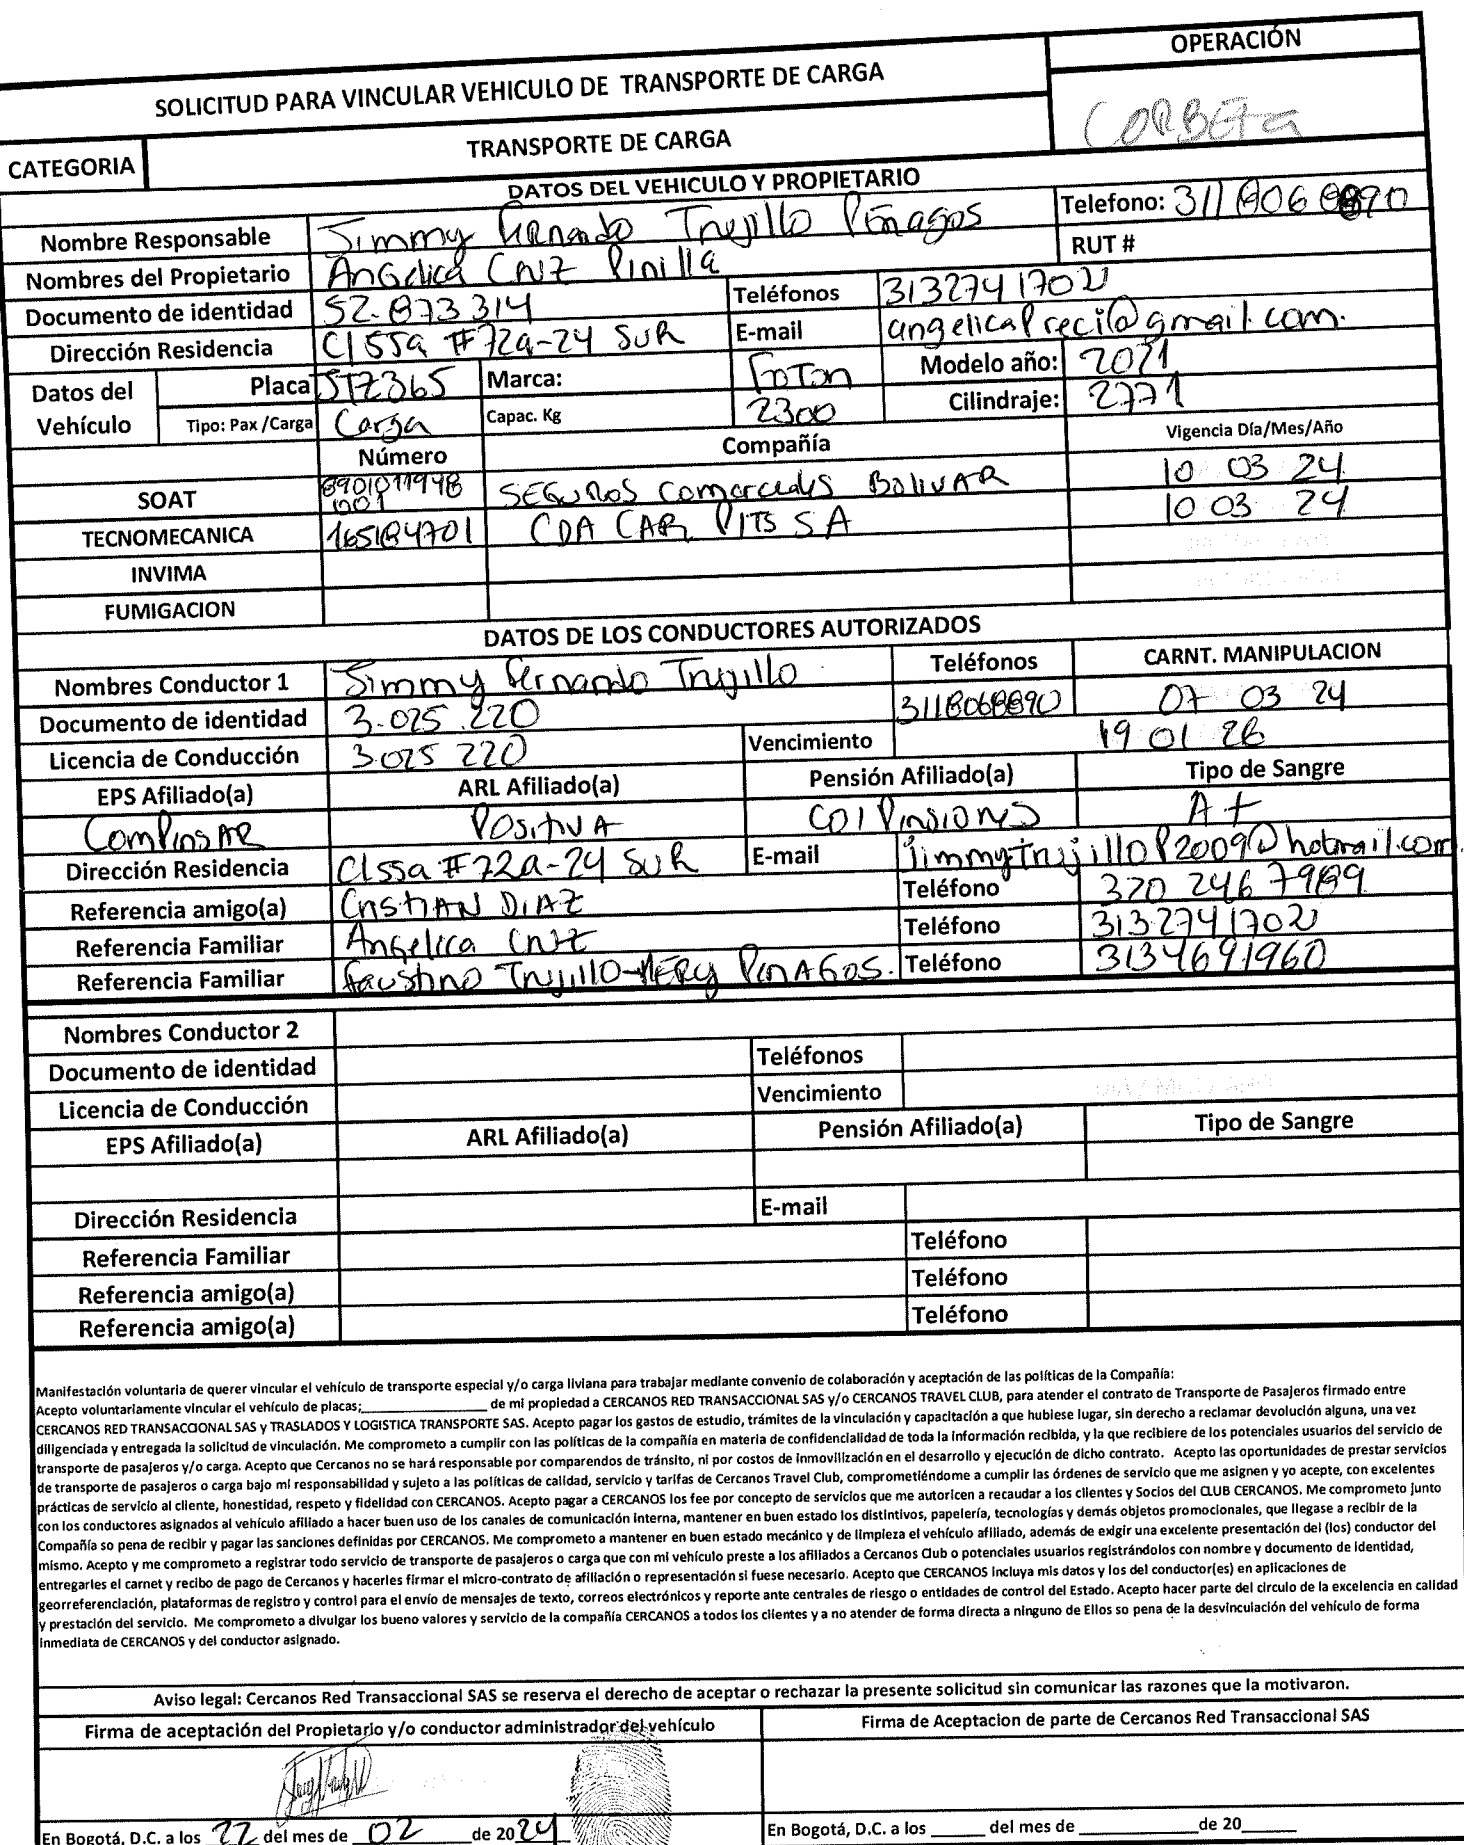 OPERACIÓN
SOLICITUD PARA VINCULAR VEHICULO DE TRANSPORTE DE CARGA
CORBETA
CATEGORIA TRANSPORTE DE CARGA
DATOS DEL VEHICULO Y PROPIETARIO
Nombre Responsable Jimmy Fernando Trujillo Penagos Telefono: 3118068890
Nombres del Propietario Angelica Cruz Pinilla RUT #
Documento de identidad 52.873314 Teléfonos 3132741702
Dirección Residencia Cl 55a #72a-24 SUR E-mail angelicaPreci@gmail.com.
Datos del Vehículo Placa Marca: FOTON Modelo año: 2021
Tipo: Pax /Carga Carga Capac. Kg 2300 Cilindraje: 2771
Número Compañía Vigencia Día/Mes/Año
SOAT SEGUROS Comerciales BOLIVAR 10 03 24
TECNOMECANICA 165184701 CDA CAR PITS SA 10 03 24
INVIMA
FUMIGACION
DATOS DE LOS CONDUCTORES AUTORIZADOS
Nombres Conductor 1 Jimmy Fernando Trujillo Teléfonos CARNT. MANIPULACION
Documento de identidad 3.025.220 3118068890 07 03 24
Licencia de Conducción 3025 220 Vencimiento 19 01 26
EPS Afiliado(a) ARL Afiliado(a) Pensión Afiliado(a) Tipo de Sangre
ComPensAR POSitIVA COlPensiones A+
Dirección Residencia Cl55a #72a-24 SUR E-mail jimmytrujilloP2009@hotmail.com
Referencia amigo(a) CristiAN DIAZ Teléfono 320 246 7989
Referencia Familiar Angelica Cruz Teléfono 3132741702
Referencia Familiar Faustino Trujillo-MERY PenAGOS. Teléfono 3134691960
Nombres Conductor 2
Documento de identidad Teléfonos
Licencia de Conducción Vencimiento
EPS Afiliado(a) ARL Afiliado(a) Pensión Afiliado(a) Tipo de Sangre
Dirección Residencia E-mail
Referencia Familiar Teléfono
Referencia amigo(a) Teléfono
Referencia amigo(a) Teléfono
Manifestación voluntaria de querer vincular el vehículo de transporte especial y/o carga liviana para trabajar mediante convenio de colaboración y aceptación de las políticas de la Compañía:
Acepto voluntariamente vincular el vehículo de placas;____________________ de mi propiedad a CERCANOS RED TRANSACCIONAL SAS y/o CERCANOS TRAVEL CLUB, para atender el contrato de Transporte de Pasajeros firmado entre
CERCANOS RED TRANSACCIONAL SAS y TRASLADOS Y LOGISTICA TRANSPORTE SAS. Acepto pagar los gastos de estudio, trámites de la vinculación y capacitación a que hubiese lugar, sin derecho a reclamar devolución alguna, una vez
diligenciada y entregada la solicitud de vinculación. Me comprometo a cumplir con las políticas de la compañía en materia de confidencialidad de toda la información recibida, y la que recibiere de los potenciales usuarios del servicio de
transporte de pasajeros y/o carga. Acepto que Cercanos no se hará responsable por comparendos de tránsito, ni por costos de inmovilización en el desarrollo y ejecución de dicho contrato. Acepto las oportunidades de prestar servicios
de transporte de pasajeros o carga bajo mi responsabilidad y sujeto a las políticas de calidad, servicio y tarifas de Cercanos Travel Club, comprometiéndome a cumplir las órdenes de servicio que me asignen y yo acepte, con excelentes
prácticas de servicio al cliente, honestidad, respeto y fidelidad con CERCANOS. Acepto pagar a CERCANOS los fee por concepto de servicios que me autoricen a recaudar a los clientes y Socios del CLUB CERCANOS. Me comprometo junto
con los conductores asignados al vehículo afiliado a hacer buen uso de los canales de comunicación interna, mantener en buen estado los distintivos, papelería, tecnologías y demás objetos promocionales, que llegase a recibir de la
Compañía so pena de recibir y pagar las sanciones definidas por CERCANOS. Me comprometo a mantener en buen estado mecánico y de limpieza el vehículo afiliado, además de exigir una excelente presentación del (los) conductor del
mismo. Acepto y me comprometo a registrar todo servicio de transporte de pasajeros o carga que con mi vehículo preste a los afiliados a Cercanos Club o potenciales usuarios registrándolos con nombre y documento de identidad,
entregarles el carnet y recibo de pago de Cercanos y hacerles firmar el micro-contrato de afiliación o representación si fuese necesario. Acepto que CERCANOS incluya mis datos y los del conductor(es) en aplicaciones de
georreferenciación, plataformas de registro y control para el envío de mensajes de texto, correos electrónicos y reporte ante centrales de riesgo o entidades de control del Estado. Acepto hacer parte del circulo de la excelencia en calidad
y prestación del servicio. Me comprometo a divulgar los bueno valores y servicio de la compañía CERCANOS a todos los clientes y a no atender de forma directa a ninguno de Ellos so pena de la desvinculación del vehículo de forma
inmediata de CERCANOS y del conductor asignado.
Aviso legal: Cercanos Red Transaccional SAS se reserva el derecho de aceptar o rechazar la presente solicitud sin comunicar las razones que la motivaron.
Firma de aceptación del Propietario y/o conductor administrador del vehículo Firma de Aceptacion de parte de Cercanos Red Transaccional SAS
En Bogotá, D.C. a los 22 del mes de 02 de 2024 En Bogotá, D.C. a los ______ del mes de ______________de 20______